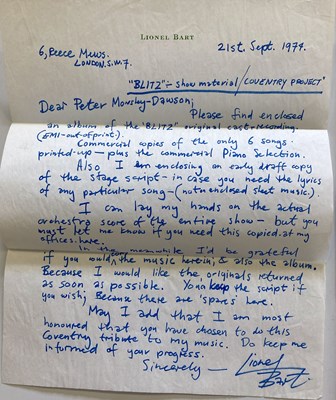 LIONEL BART
6, Reece Mews.
LONDON. S.W.7.
21st. Sept. 1979.
"BLITZ" :- show material / COVENTRY PROJECT
Dear Peter Mowsley-Dawson;
Please find enclosed
an album of the "BLITZ" original cast-recording.
(EMI-out-of-print).
Commercial copies of the only 6 songs
printed-up — plus the commercial Piano Selection.
Also I am enclosing an early draft copy
of the stage script - in case you need the lyrics
of any particular song — (not in enclosed sheet music).
I can lay my hands on the actual
orchestra score of the entire show — but you
must let me know if you need this copied at my
offices here.
In the meanwhile I'd be grateful
if you would copy the music herein, & also the album.
Because I would like the originals returned
as soon as possible. You keep the script if
you wish; Because there are 'spares' here.
May I add that I am most
honoured that you have chosen to do this
Coventry tribute to my music. Do keep me
informed of your progress.
Sincerely — Lionel
Bart.